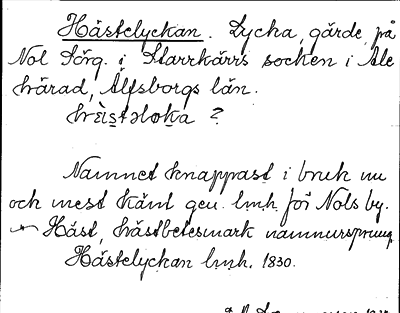 Hästelyckan. Lycka, gärde, på
Nol Sörg. i Starrkärrs socken i Ale
härad, Älfsborgs län.
hɛ̀istəloka ?
Namnet knappast i bruk nu
och mest känt gen. lmh. för Nols by.
Häst, hästbetesmark namnursprung
Hästelyckan lmh. 1830.